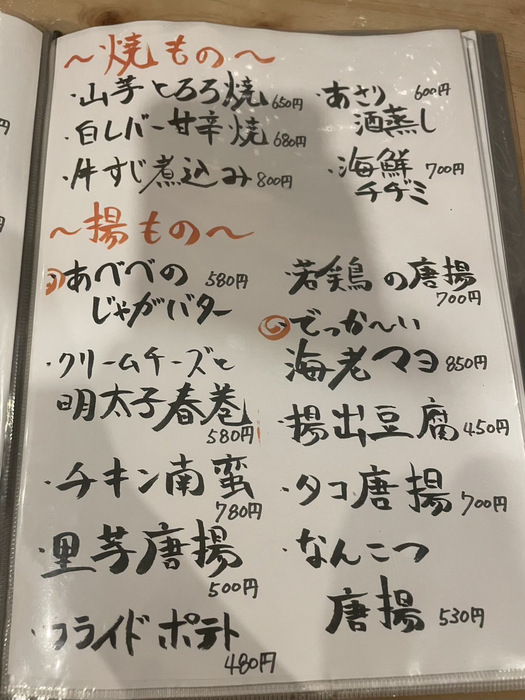 ～焼もの～
・山芋とろろ焼 650円
・白レバー甘辛焼 680円
・牛すじ煮込み 800円
・あさり 600円
酒蒸し
・海鮮 700円
チヂミ
～揚もの～
あべべの 580円
じゃがバター
・クリームチーズと
明太子春巻
580円
・チキン南蛮
780円
・里芋唐揚
500円
・フライドポテト
480円
・若鶏の唐揚
700円
でっか～い
海老マヨ 850円
・揚出豆腐 450円
・タコ唐揚 700円
・なんこつ
唐揚 530円